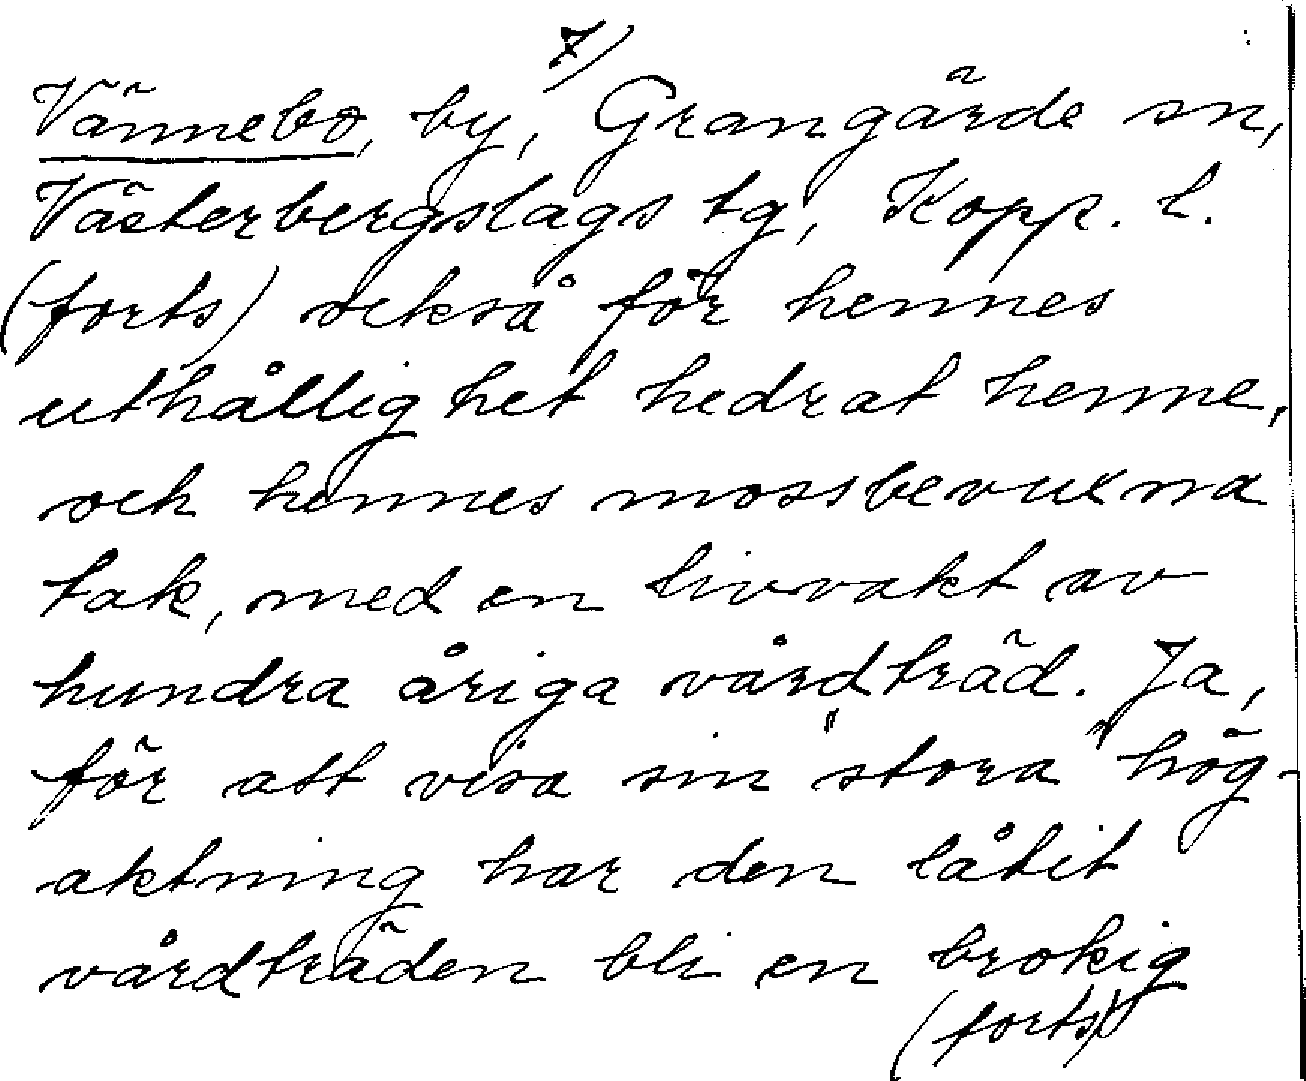 7)
Vännebo, by, Grangärde sn,
Västerbergslags tg, Kopp. l.
(forts) också för hennes
uthållighet hedrat henne,
och hennes mossbevuxna
tak, med en livvakt av
hundra åriga vårdträd. Ja,
för att visa sin "stora" hög-
aktning har den låtit
vårdträden bli en brokig
(forts)